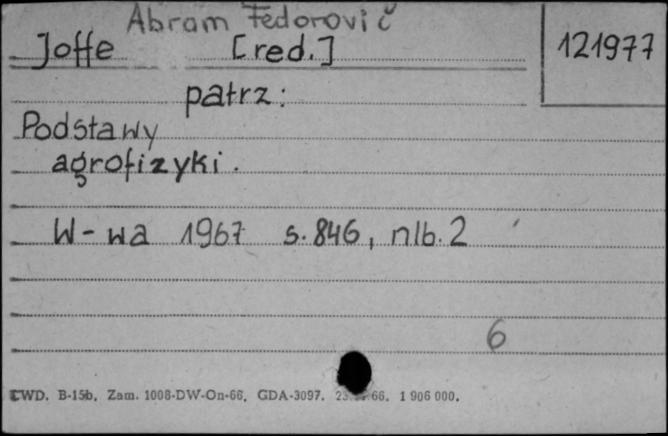 Abram Fedorovič
Joffe [red.] 121977
patrz:
Podstawy
agrofizyki.
W-wa 1967 s. 846, nlb. 2
6
CWD. B-15b. Zam. 1008-DW-On-66. GDA-3097. 66. 1 906 000.